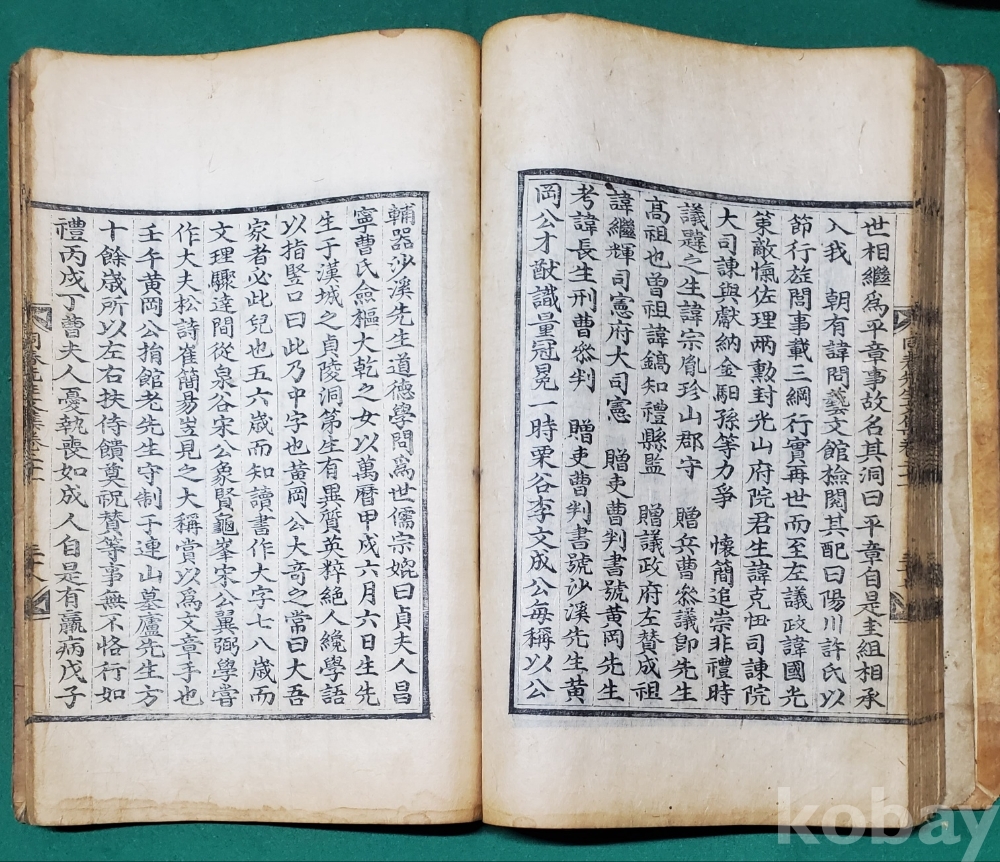 世相繼爲平章事故名其洞曰平章自是圭組相承
入我 朝有諱問藝文館檢閱其配曰陽川許氏以
節行㫌閭事載三綱行實再世而至左議政諱國光
策敵愾佐理兩勲封光山府院君生諱克忸司諫院
大司諫與獻納金馹孫等力爭 懷簡追崇非禮時
議韙之生諱宗胤珍山郡守 贈兵曹叅議卽先生
高祖也曾祖諱鎬知禮縣監 贈議政府左賛成祖
諱繼輝司憲府大司憲 贈吏曹判書號黃岡先生
考諱長生刑曹叅判 贈吏曹判書號沙溪先生黃
岡公才猷識量冠冕一時栗谷李文成公每稱以公
輔器沙溪先生道德學問爲世儒宗妣曰貞夫人昌
寧曹氏僉樞大乾之女以萬曆甲戌六月六日生先
生于漢城之貞陵洞第生有異質英粹絕人纔學語
以指竪口曰此乃中字也黃岡公大竒之常曰大吾
家者必此兒也五六歲而知讀書作大字七八歲而
文理驟達間從泉谷宋公象賢龜峯宋公翼弼學嘗
作大夫松詩崔簡易岦見之大稱賞以爲文章手也
壬午黃岡公捐館老先生守制于連山墓廬先生方
十餘歲所以左右扶侍饋奠祝賛等事無不恪行如
禮丙戌丁曹夫人憂執喪如成人自是有羸病戊子
kobay